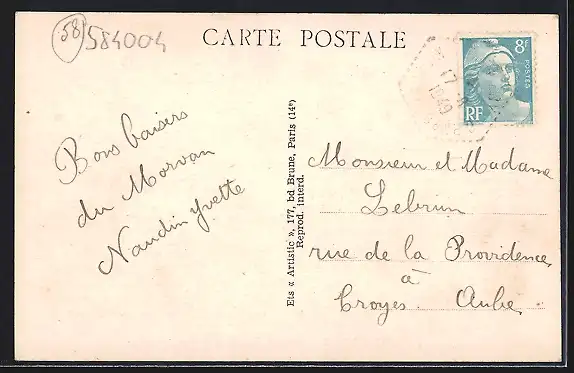 58
584004
CARTE POSTALE
8F
POSTES
RF
17
1949
Bons baisers
du Morvan
Naudin Yvette
Ets « Artistic », 177, bd Brune, Paris (14e)
Reprod. interd.
Monsieur et Madame
Lebrun
rue de la Providence
à
Troyes. Aube.